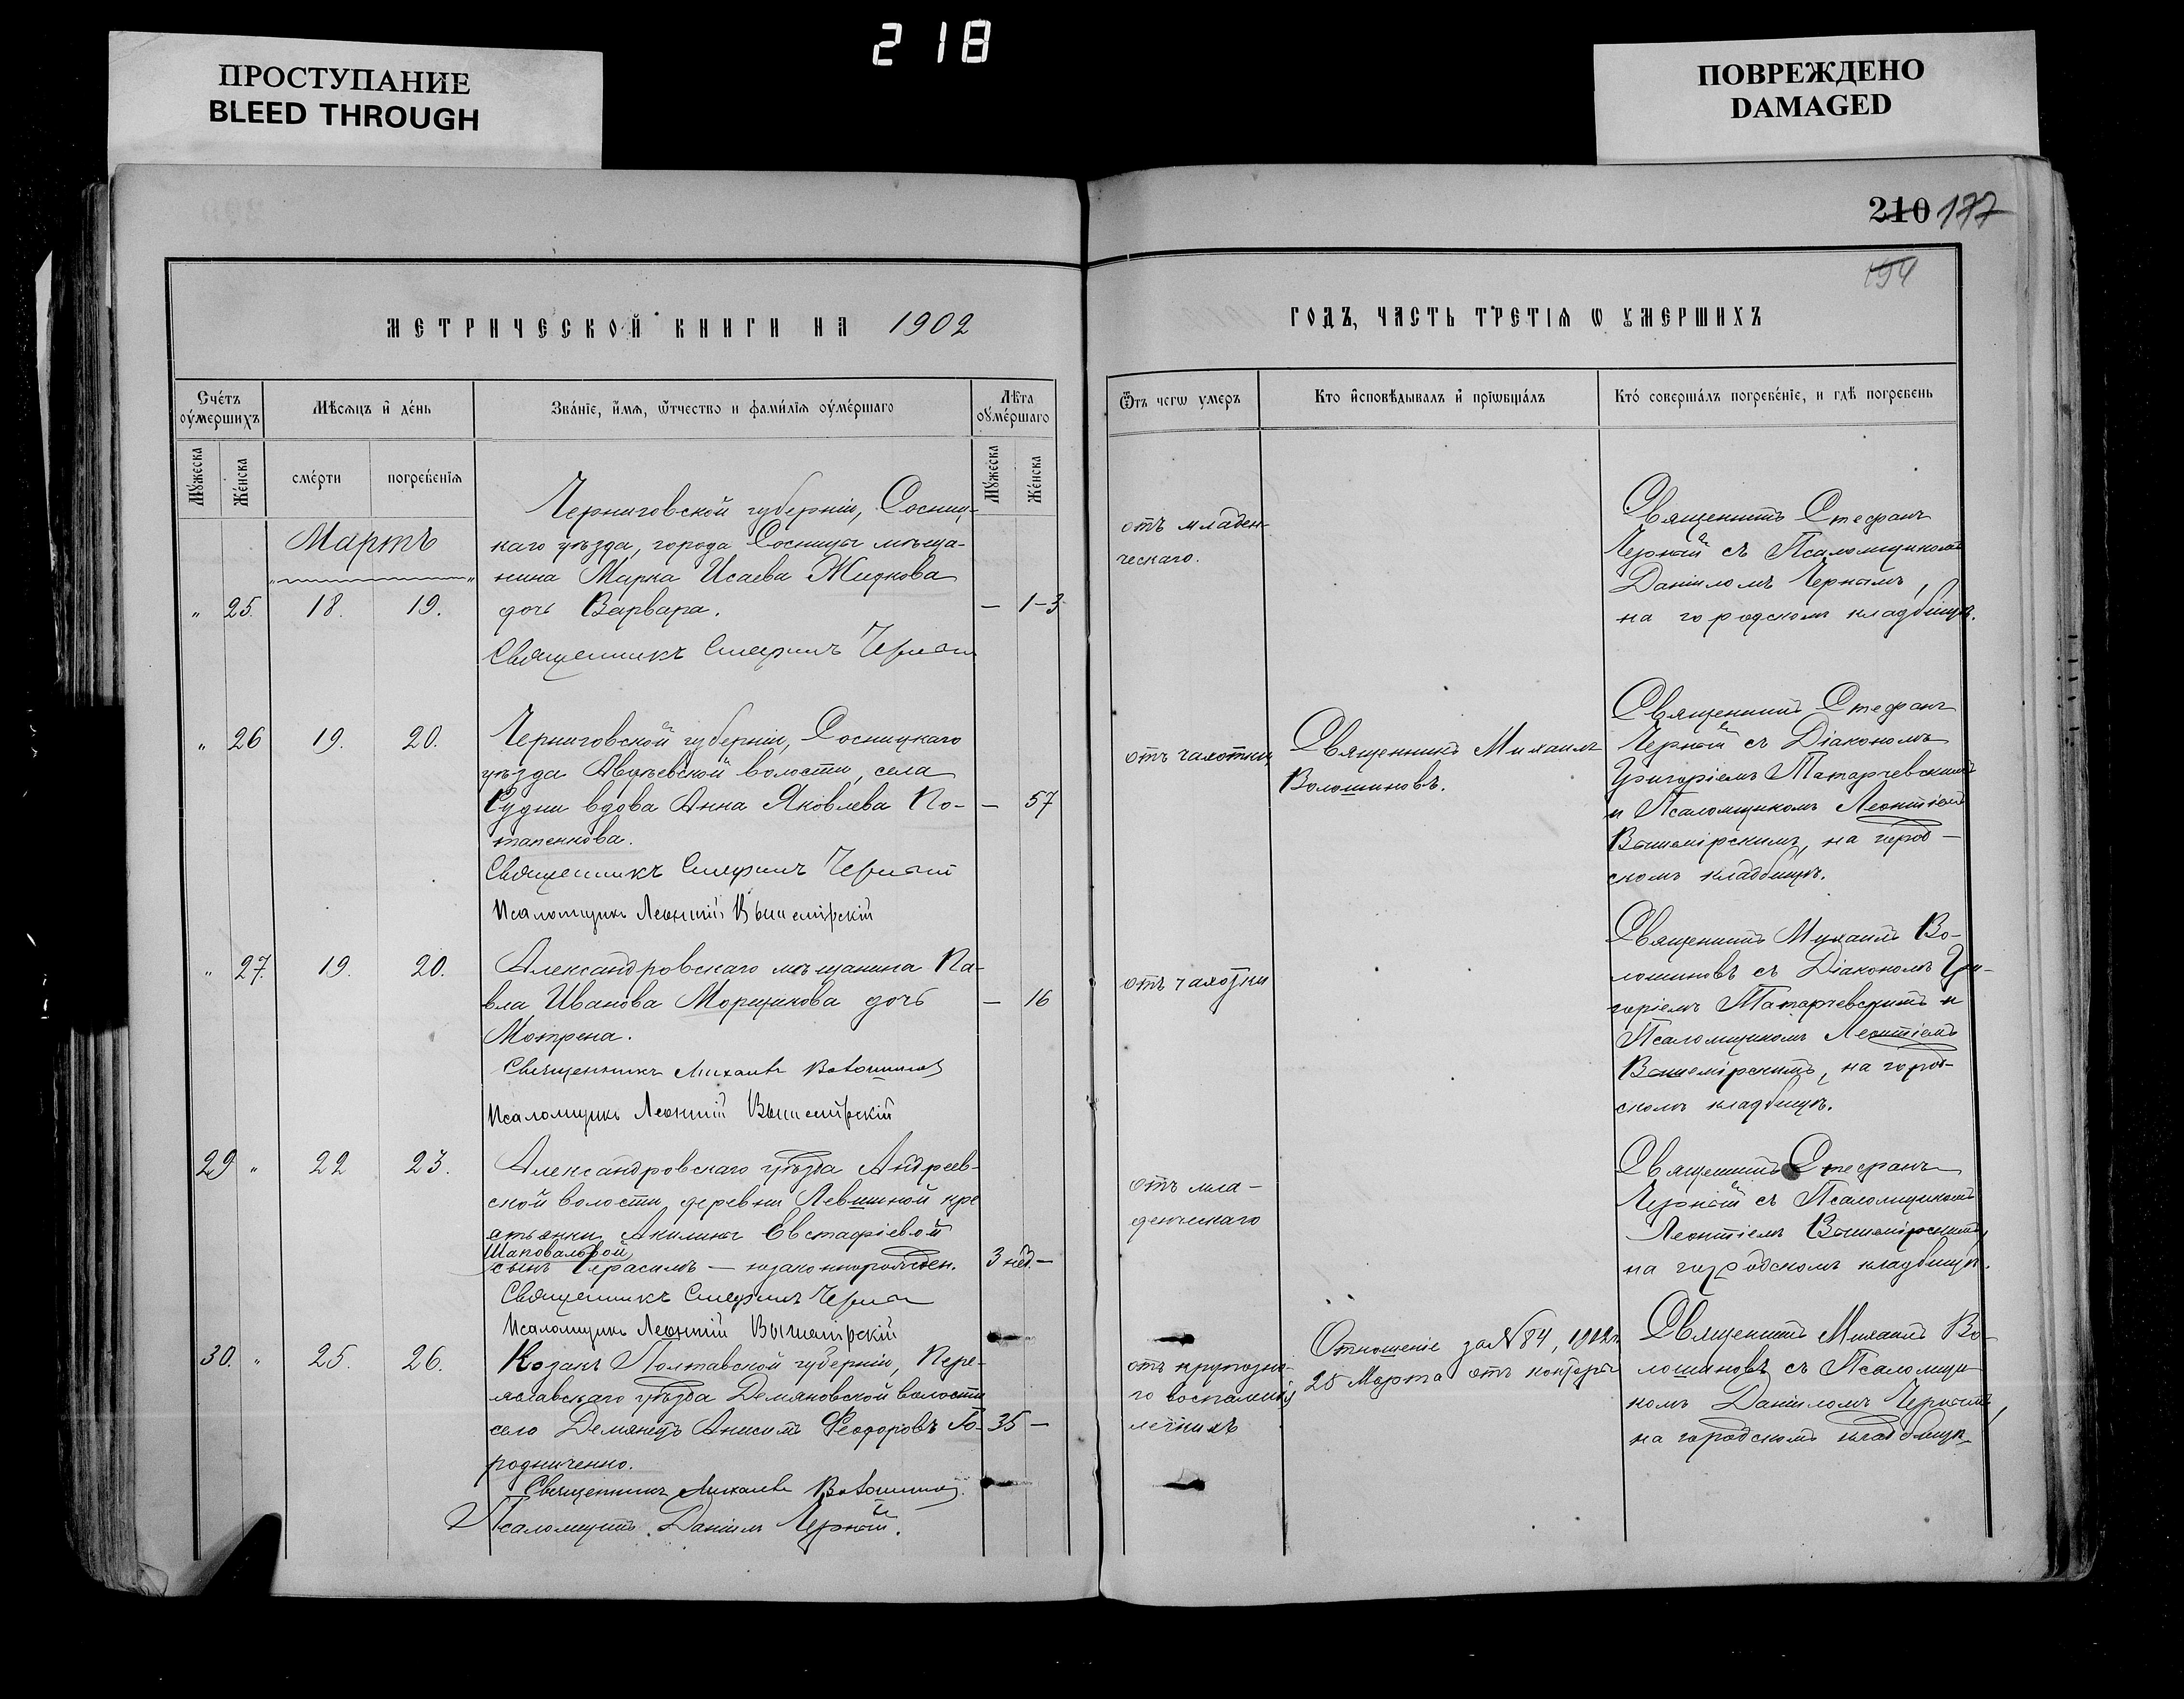 218
ПРОСТУПАНИЕ
BLEED THROUGH
ПОВРЕЖДЕНО
DAMAGED
210 177
194
МЕТРИЧЕСКОЙ КНИГИ НА 1902
ГОДЪ, ЧАСТЬ ТРЕТІѦ Ѡ УМЕРШИХЪ
Сче́тъ оу́мершихъ
Мѣсѧцъ и҆ де́нь
Зва́нїе, и҆́мѧ, ѿтчество и фами́лїѧ оу́ме́ршаго
Лѣ́та оу́ме́ршаго
Ѿтъ чегѡ умеръ
Кто и҆сповѣ́дывалъ и҆ прїѡбща́лъ
Кто́ соверша́лъ погребе́нїе, и гдѣ̀ погребенъ
Му́жеска
Же́нска
сме́рти
погребе́нїѧ
Му́жеска
Же́нска
Мартъ
Черниговской губерніи, Сосниц-
каго уѣзда, города Сосницы мѣща-
нина Марка Исаева Жидкова
" 25. 18. 19. дочь Варвара. — 1-3
Священникъ Стефанъ Черный
отъ младен-
ческаго.
Священникъ Стефанъ
Черный съ Псаломщикомъ
Даніиломъ Чернымъ,
на городскомъ кладбищѣ.
" 26 19. 20. Черниговской губерніи, Сосницкаго
уѣзда Авдѣевской волости, села
Рудни вдова Анна Яковлева По- — 57
тапенкова.
Священникъ Стефанъ Черный
Псаломщикъ Леонтій Вышемірскій
отъ чахотки
Священникъ Михаилъ
Волошиновъ.
Священникъ Стефанъ
Черный съ Діакономъ
Григоріемъ Татарчевскимъ
и Псаломщикомъ Леонтіемъ
Вышемірскимъ, на город-
скомъ кладбищѣ.
" 27. 19. 20. Александровскаго мѣщанина Па-
вла Иванова Морщикова дочь — 16
Мотрена.
Священникъ Михаилъ Волошиновъ
Псаломщикъ Леонтій Вышемірскій
отъ чахотки
Священникъ Михаилъ Во-
лошиновъ съ Діакономъ Гри-
горіемъ Татарчевскимъ и
Псаломщикомъ Леонтіемъ
Вышемірскимъ, на город-
скомъ кладбищѣ.
29 " 22 23. Александровскаго уѣзда Андреев-
ской волости деревни Левшиной кре
стьянки Акилины Евстафіевой
Шаповаловой
сынъ Герасимъ — незаконнорожден. 3 нед. —
Священникъ Стефанъ Черный
Псаломщикъ Леонтій Вышемірскій
отъ мла-
денческаго
Священникъ Стефанъ
Черный съ Псаломщикомъ
Леонтіемъ Вышемірскимъ,
на городскомъ кладбищѣ.
30. " 25. 26. Козакъ Полтавской губерніи, Пере-
яславскаго уѣзда Демяновской волости
село Демянецъ Анисимъ Ѳеодоровъ Го- 35 —
родниченко.
Священникъ Михаилъ Волошиновъ.
Псаломщикъ Даніилъ Черный.
отъ крупозна-
го воспаленія
легкихъ
Отношеніе за № 84, 1902 г.
25 Марта отъ конторы
Священникъ Михаилъ Во-
лошиновъ съ Псаломщи-
комъ Даніиломъ Чернымъ,
на городскомъ кладбищѣ